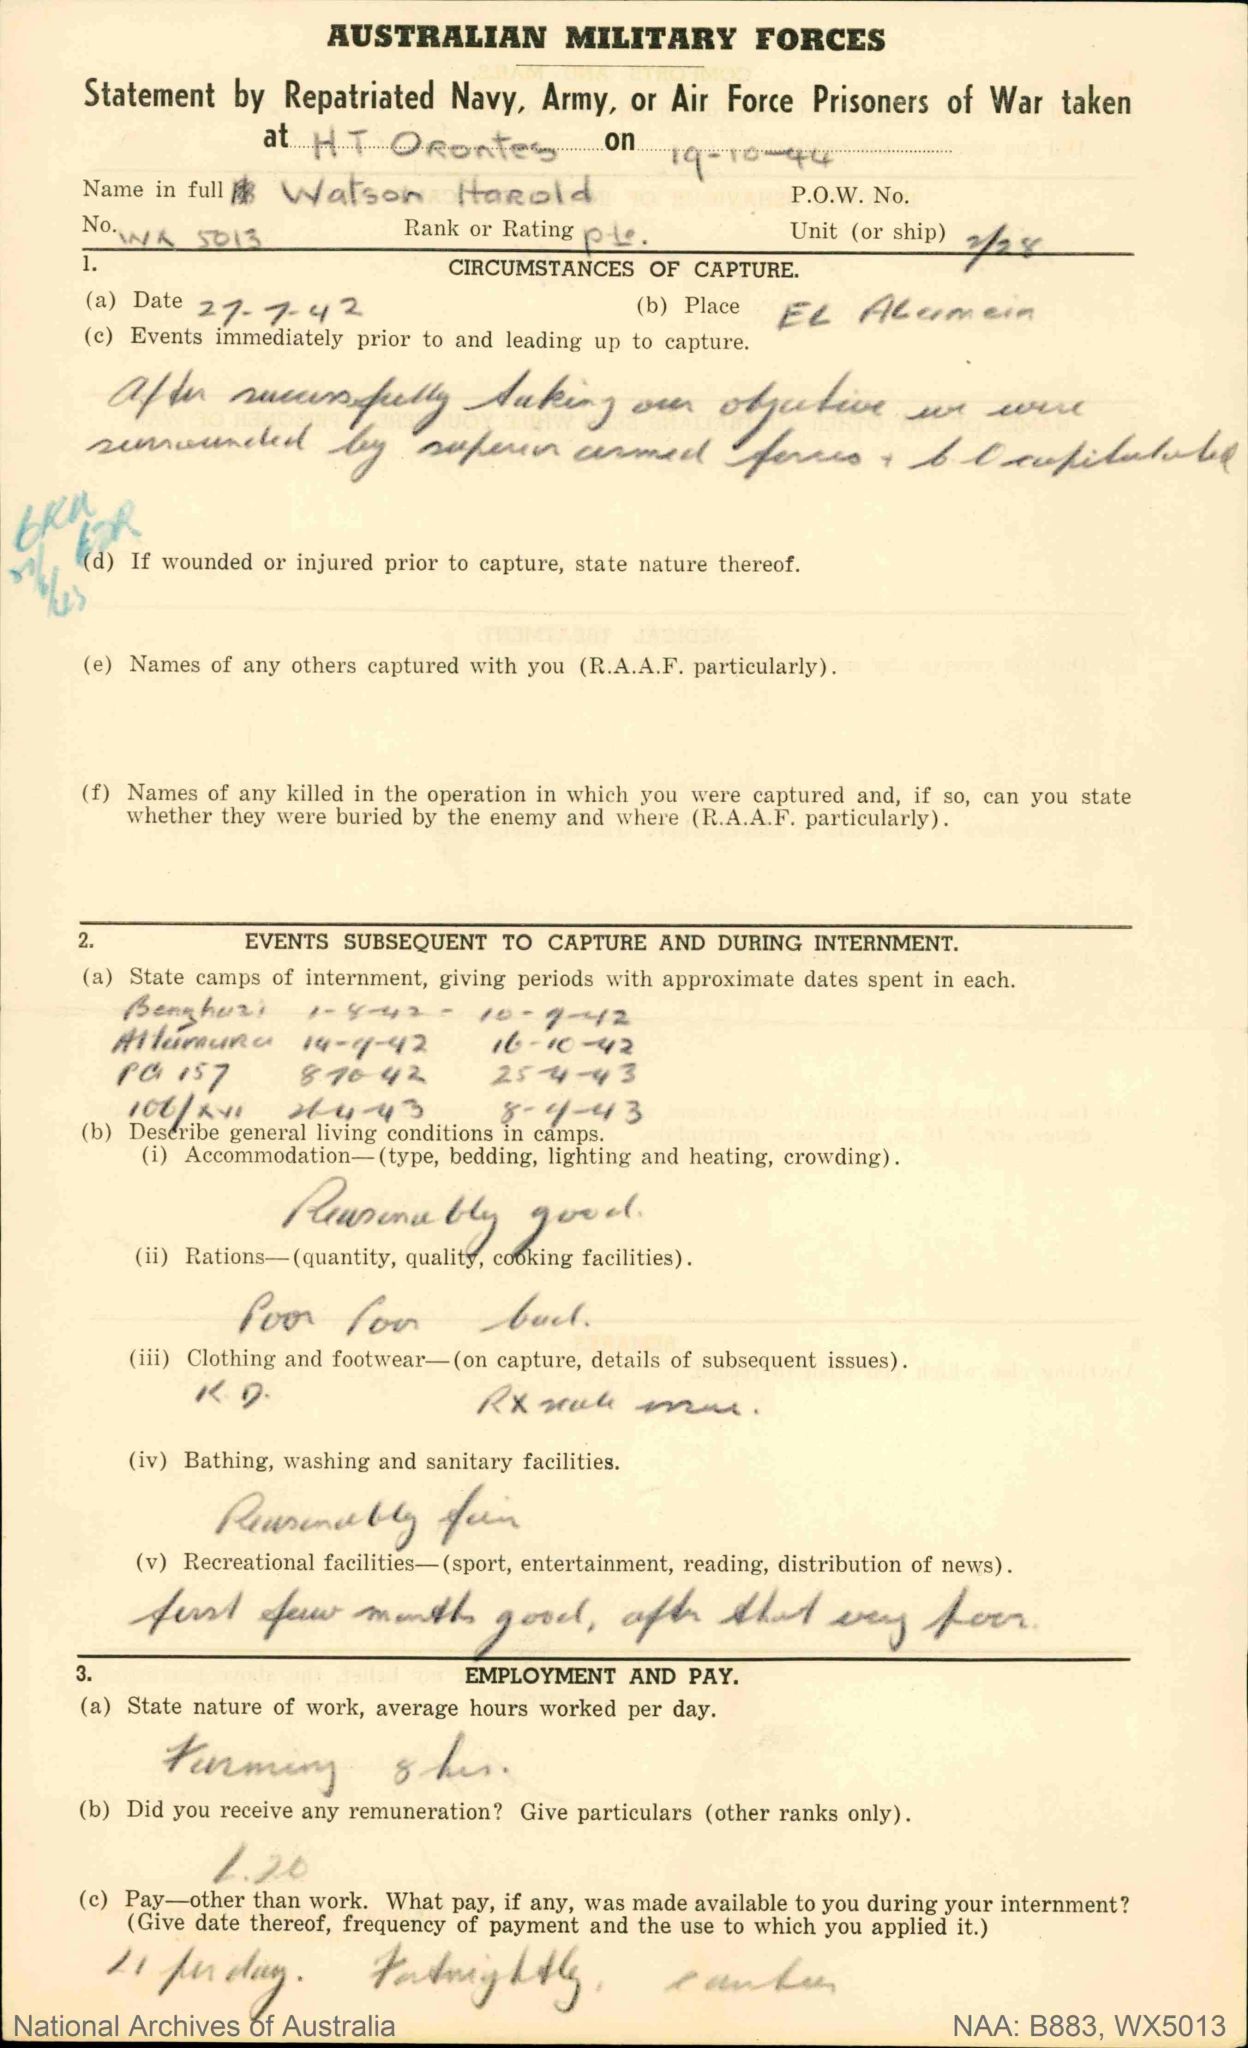 AUSTRALIAN MILITARY FORCES
Statement by Repatriated Navy, Army, or Air Force Prisoners of War taken
at HT Orontes on 19-10-44
Name in full Watson Harold P.O.W. No.
No. WX 5013 Rank or Rating pte. Unit (or ship) 2/28
1. CIRCUMSTANCES OF CAPTURE.
(a) Date 27-7-42 (b) Place El Alamein
(c) Events immediately prior to and leading up to capture.
After successfully taking our objective we were
surrounded by superior armed forces + C O capitulated
(d) If wounded or injured prior to capture, state nature thereof.
(e) Names of any others captured with you (R.A.A.F. particularly).
(f) Names of any killed in the operation in which you were captured and, if so, can you state
whether they were buried by the enemy and where (R.A.A.F. particularly).
2. EVENTS SUBSEQUENT TO CAPTURE AND DURING INTERNMENT.
(a) State camps of internment, giving periods with approximate dates spent in each.
Benghazi 1-8-42 - 10-9-42
Altamura 14-9-42 16-10-42
PG 157 8-10-42 25-4-43
106/XVII 26-4-43 8-9-43
(b) Describe general living conditions in camps.
(i) Accommodation—(type, bedding, lighting and heating, crowding).
Reasonably good.
(ii) Rations—(quantity, quality, cooking facilities).
Poor Poor bad.
(iii) Clothing and footwear—(on capture, details of subsequent issues).
K. D. RX issue
(iv) Bathing, washing and sanitary facilities.
Reasonably fair
(v) Recreational facilities—(sport, entertainment, reading, distribution of news).
first few months good, after that very poor.
3. EMPLOYMENT AND PAY.
(a) State nature of work, average hours worked per day.
Farming 8 hrs.
(b) Did you receive any remuneration? Give particulars (other ranks only).
L. 20
(c) Pay—other than work. What pay, if any, was made available to you during your internment?
(Give date thereof, frequency of payment and the use to which you applied it.)
L1 per day. Fortnightly. canteen
National Archives of Australia NAA: B883, WX5013